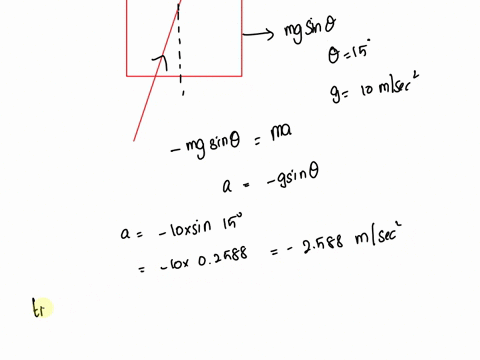 mg sin θ
θ = 15°
g = 10 m/sec²
- mg sin θ = ma
a = -g sin θ
a = -10 x sin 15°
= -10 x 0.2588 = - 2.588 m/sec²